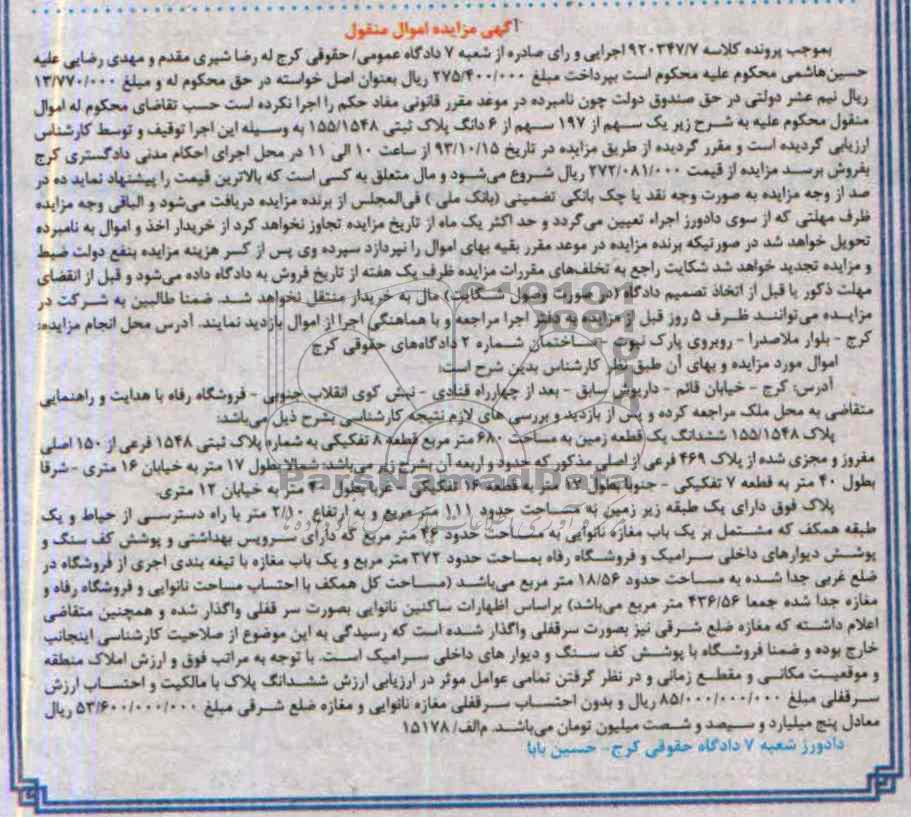 آگهی مزایده اموال منقول
بموجب پرونده کلاسه ۹۲۰۳۴۷/۷ اجرایی و رای صادره از شعبه ۷ دادگاه عمومی/ حقوقی کرج له رضا شیری مقدم و مهدی رضایی علیه
حسین هاشمی محکوم علیه محکوم است بپرداخت مبلغ ۲۷۵/۴۰۰/۰۰۰ ریال بعنوان اصل خواسته در حق محکوم له و مبلغ ۱۳/۷۷۰/۰۰۰
ریال نیم عشر دولتی در حق صندوق دولت چون نامبرده در موعد مقرر قانونی مفاد حکم را اجرا نکرده است حسب تقاضای محکوم له اموال
منقول محکوم علیه به شرح زیر یک سهم از ۱۹۷ سهم از ۶ دانگ پلاک ثبتی ۱۵۵/۱۵۴۸ به وسیله این اجرا توقیف و توسط کارشناس
ارزیابی گردیده است و مقرر گردیده از طریق مزایده در تاریخ ۹۳/۱۰/۱۵ از ساعت ۱۰ الی ۱۱ در محل اجرای احکام مدنی دادگستری کرج
بفروش برسد مزایده از قیمت ۲۷۲/۰۸۱/۰۰۰ ریال شروع می‌شود و مال متعلق به کسی است که بالاترین قیمت را پیشنهاد نماید ده در
صد از وجه مزایده به صورت وجه نقد یا چک بانکی تضمینی (بانک ملی ) فی‌المجلس از برنده مزایده دریافت می‌شود و الباقی وجه مزایده
ظرف مهلتی که از سوی دادورز اجراء تعیین می‌گردد و حد اکثر یک ماه از تاریخ مزایده تجاوز نخواهد کرد از خریدار اخذ و اموال به نامبرده
تحویل خواهد شد در صورتیکه برنده مزایده در موعد مقرر بقیه بهای اموال را نپردازد سپرده وی پس از کسر هزینه مزایده بنفع دولت ضبط
و مزایده تجدید خواهد شد شکایت راجع به تخلف‌های مقررات مزایده ظرف یک هفته از تاریخ فروش به دادگاه داده می‌شود و قبل از انقضای
مهلت ذکور یا قبل از اتخاذ تصمیم دادگاه (در صورت وصول شکایت) مال به خریدار منتقل نخواهد شد. ضمنا طالبین به شرکت در
مزایده می‌توانند ظرف ۵ روز قبل از مزایده به دفتر اجرا مراجعه و با هماهنگی اجرا از اموال بازدید نمایند. آدرس محل انجام مزایده:
کرج - بلوار ملاصدرا - روبروی پارک نبوت - ساختمان شماره ۲ دادگاه‌های حقوقی کرج
اموال مورد مزایده و بهای آن طبق نظر کارشناس بدین شرح است:
آدرس: کرج - خیابان قائم - داریوش سابق - بعد از چهارراه قنادی - نبش کوی انقلاب جنوبی - فروشگاه رفاه با هدایت و راهنمایی
متقاضی به محل ملک مراجعه کرده و پس از بازدید و بررسی های لازم نتیجه کارشناسی بشرح ذیل می‌باشد:
پلاک ۱۵۵/۱۵۴۸ ششدانگ یک قطعه زمین به مساحت ۶۸۰ متر مربع قطعه ۸ تفکیکی به شماره پلاک ثبتی ۱۵۴۸ فرعی از ۱۵۰ اصلی
مفروز و مجزی شده از پلاک ۴۶۹ فرعی از اصلی مذکور که حدود و اربعه آن بشرح زیر می‌باشد: شمالا بطول ۱۷ متر به خیابان ۱۶ متری - شرقا
بطول ۴۰ متر به قطعه ۷ تفکیکی - جنوبا بطول ۱۷ متر به قطعه ۱۴ تفکیکی - غربا بطول ۴۰ متر به خیابان ۱۲ متری.
پلاک فوق دارای یک طبقه زیر زمین به مساحت حدود ۱۱۱ متر مربع و به ارتفاع ۲/۱۰ متر با راه دسترسی از حیاط و یک
طبقه همکف که مشتمل بر یک باب مغازه نانوایی به مساحت حدود ۴۶ متر مربع که دارای سرویس بهداشتی و پوشش کف سنگ و
پوشش دیوارهای داخلی سرامیک و فروشگاه رفاه بمساحت حدود ۳۷۲ متر مربع و یک باب مغازه با تیغه بندی اجری از فروشگاه در
ضلع غربی جدا شده به مساحت حدود ۱۸/۵۶ متر مربع می‌باشد (مساحت کل همکف با احتساب مساحت نانوایی و فروشگاه رفاه و
مغازه جدا شده جمعا ۴۳۶/۵۶ متر مربع می‌باشد) براساس اظهارات ساکنین نانوایی بصورت سر قفلی واگذار شده و همچنین متقاضی
اعلام داشته که مغازه ضلع شرقی نیز بصورت سرقفلی واگذار شده است که رسیدگی به این موضوع از صلاحیت کارشناسی اینجانب
خارج بوده و ضمنا فروشگاه با پوشش کف سنگ و دیوار های داخلی سرامیک است. با توجه به مراتب فوق و ارزش املاک منطقه
و موقعیت مکانی و مقطع زمانی و در نظر گرفتن تمامی عوامل موثر در ارزیابی ارزش ششدانگ پلاک با مالکیت و احتساب ارزش
سرقفلی مبلغ ۸۵/۰۰۰/۰۰۰/۰۰۰ ریال و بدون احتساب سرقفلی مغازه نانوایی و مغازه ضلع شرقی مبلغ ۵۳/۶۰۰/۰۰۰/۰۰۰ ریال
معادل پنج میلیارد و سیصد و شصت میلیون تومان می‌باشد. م‌الف/ ۱۵۱۷۸
دادورز شعبه ۷ دادگاه حقوقی کرج- حسین بابا
ParsNamadData